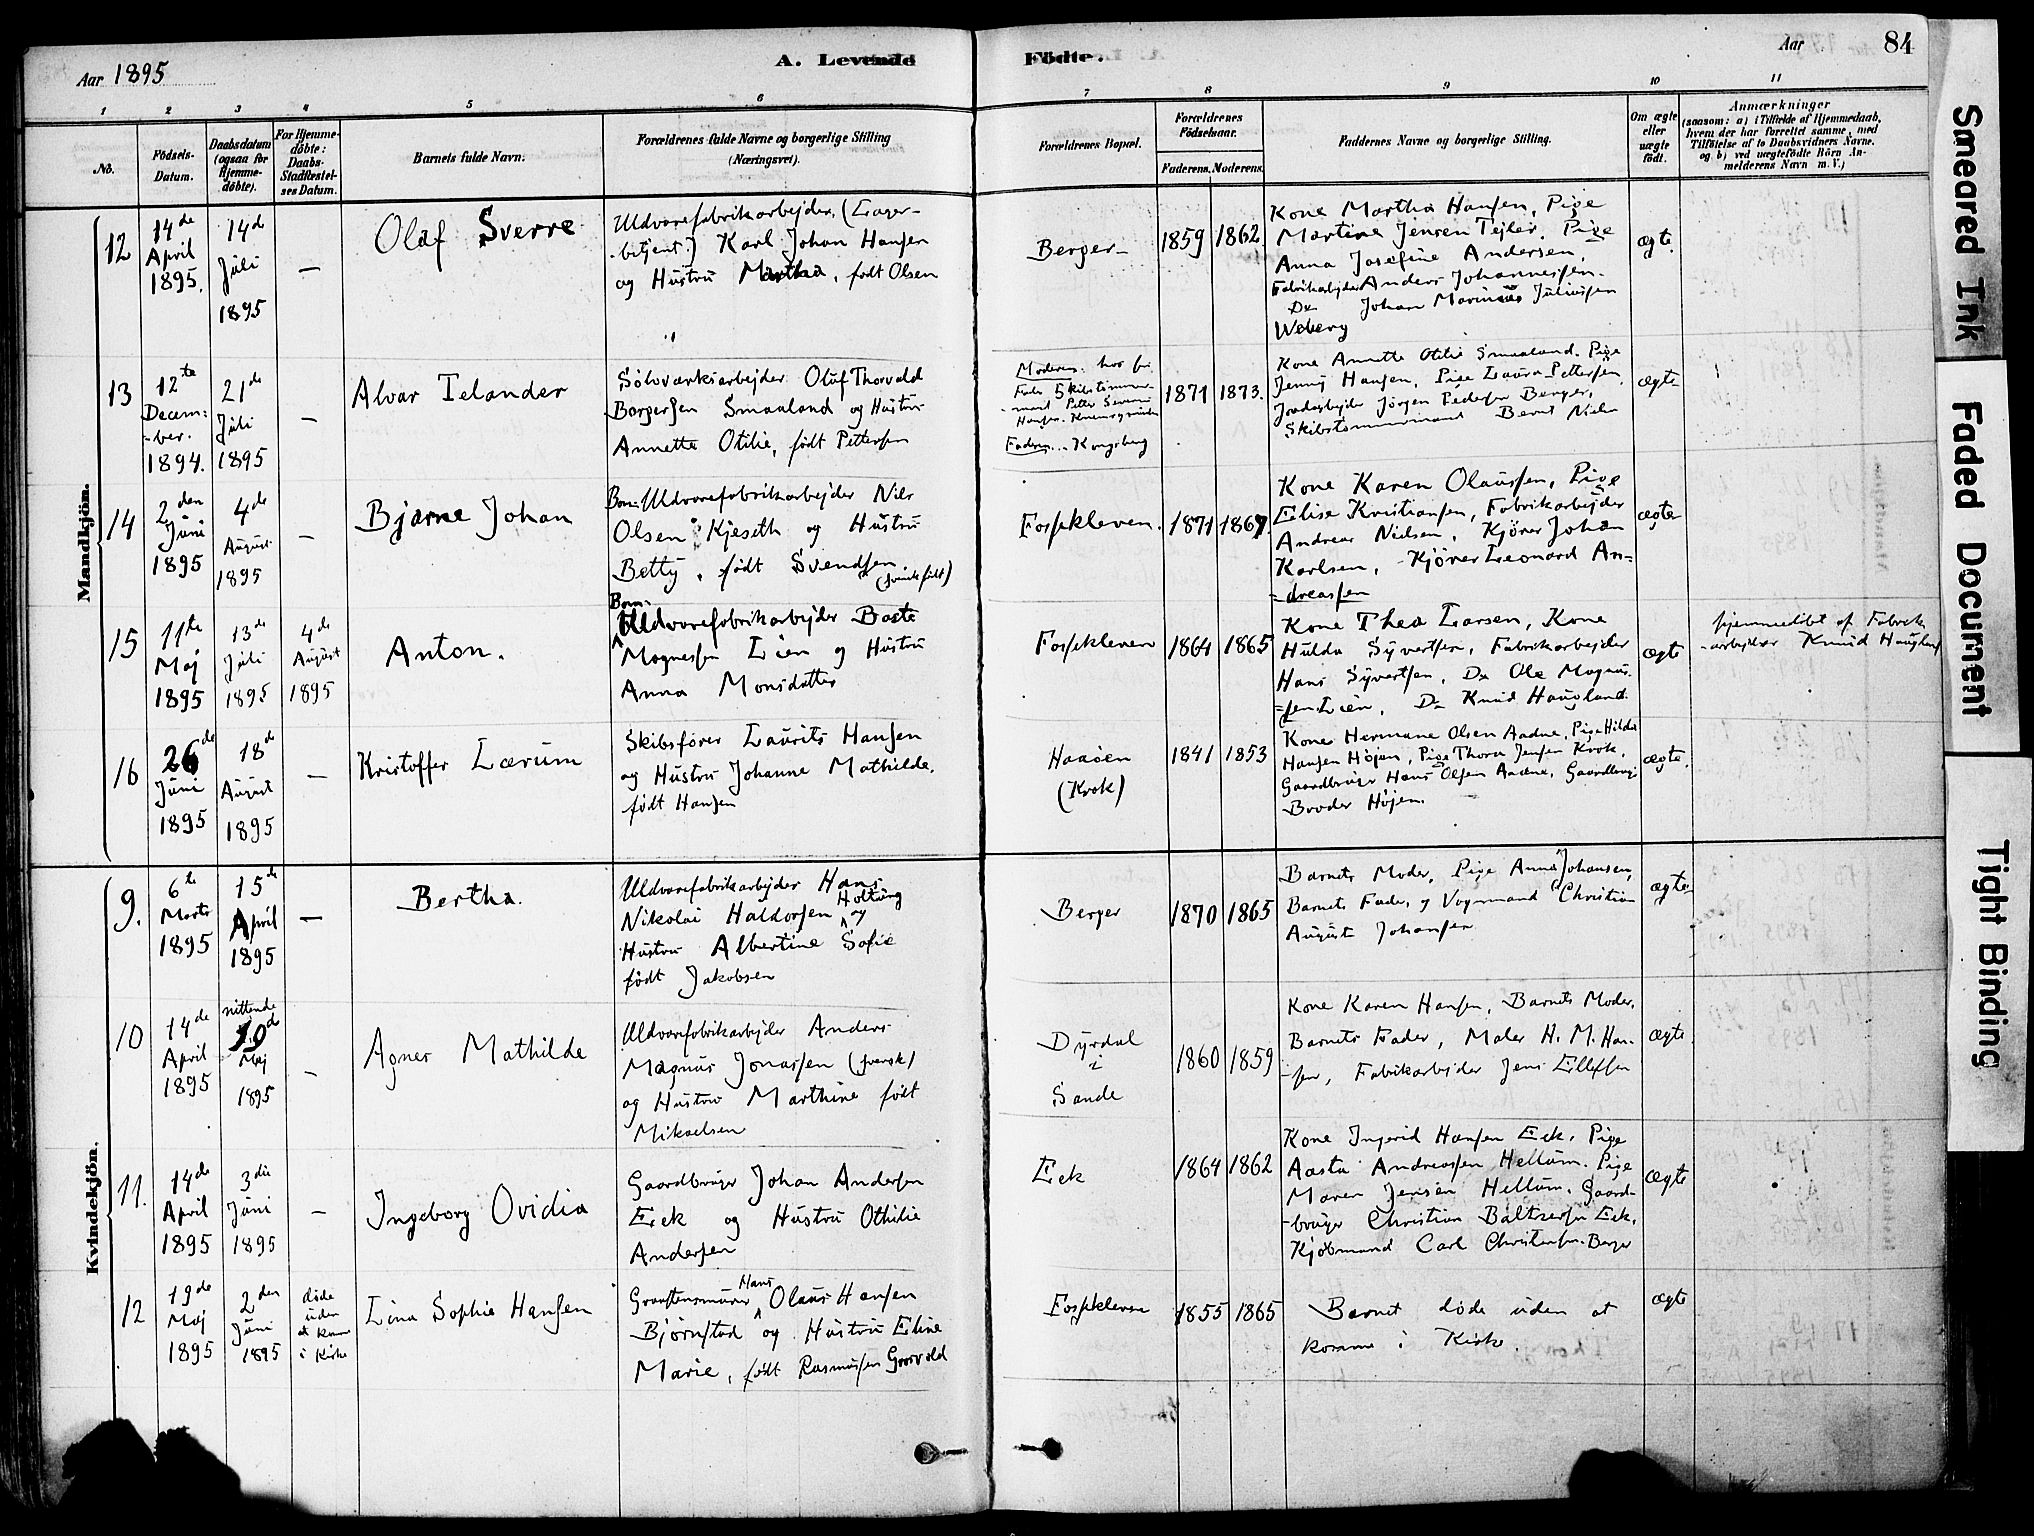 Aar 1895
A. Levende
Födte.
Aar
84
1
2
3
4
5
6
7
8
9
10
11
No.
Födsels-
Datum.
Daabsdatum
(ogsaa for
Hjemme-
döbte).
For Hjemme-
döbte:
Daabs-
Stadfæstel-
ses Datum.
Barnets fulde Navn.
Forældrenes fulde Navne og borgerlige Stilling
(Næringsvei).
Forældrenes Bopæl.
Forældrenes
Födselsaar.
Faderens. Moderens.
Faddernes Navne og borgerlige Stilling.
Om ægte
eller
uægte
födt.
Anmærkninger
(saasom: a) i Tilfælde af Hjemmedaab,
hvem der har forrettet samme, med
Tilföielse af to Daabsvidners Navne.
og b) ved uægtefödte Börn An-
melderens Navn m.V.)
Mandkjön.
12
14de
April
1895.
14d
Juli
1895
—
Olaf Sverre
Uldvarefabrikarbejder, (Lager-
-betjent) Karl Johan Hansen
og Hustru Martha, født Olsen
Berger
1859
1862.
Kone Martha Hansen, Pige
Martine Jensen Tejler, Pige
Anna Josefine Andersen,
Fabrikarbejder Anders Johannessen.
Do Johan Marinius Juliussen
Weberg
ægte.
13
12te
Decem-
-ber.
1894.
21de
Juli
1895
—
Alvar Telander
Sölvværksarbejder Oluf Thorvald
Borgersen Smaaland og Hustru
Annette Otilie, født Pettersen
Moderen. hos sin
Fader Skibstømmer-
-mand Petter Severin
Hansen
Faderen. Kongsberg
1871
1873.
Kone Annette Otilie Smaaland. Pige
Jenny Hansen, Pige Laura Pettersen,
Jordarbejder Jörgen Pedersen Berger,
Skibstømmermand Bernt
ægte
14
2den
Juni
1895
4de
August
1895
—
Bjarne Johan
Bom-Uldvarefabrikarbejder Nils
Olsen Kjeseth og Hustru
Betty, født Svendsen
Fossekleven.
1871
1867.
Kone Karen Olaussen, Pige
Elise Kristiansen, Fabrikarbejder
Andreas Nielsen, Kjører Johan
Karlsen, Kjører Leonard An-
=dreassen
ægte
15
11te
Maj
1895
13de
Juli
1895
4de
August
1895
Anton.
Bom-
Uldvarefabrikarbejder Baste
Magnessen Lien og Hustru
Anna Monsdatter
Fossekleven
1864
1865
Kone Thea Larsen, Kone
Hulda Syvertsen, Fabrikarbejder
Hans Syvertsen, Do Ole Magnus-
=sen Lien, Do Knud Haugland.
ægte
hjemmedøbt af Fabrik-
-arbejder Knud Haugland
16
26de
Juni
1895
18de
August
1895
—
Kristoffer Lærum
Skibsfører Laurits Hansen
og Hustru Johanne Mathilde,
født Hansen
Haaøen
(Krok)
1841
1853
Kone Hermane Olsen Aadne, Pige Hilda
Hansen Höjen, Pige Thora Jensen Krok,
Gaardbruger Hans Olsen Aadne, Gaardbruger
Höjen.
ægte.
Kvindekjön.
9.
6te
Marts
1895
15de
April
1895
—
Bertha.
Uldvarefabrikarbejder Hans
Nikolai Haldorsen Holtung og
Hustru Albertine Sofie
født Jakobsen
Berger
1870
1865
Barnets Moder, Pige Anna Johansen,
Barnets Fader, og Vognmand Christian
August Johansen
ægte
10
14de
April
1895
nittende
19de
Maj
1895
—
Agnes Mathilde
Uldvarefabrikarbejder Anders
Magnus Jonassen (svensk)
og Hustru Marthine født
Mikaelsen
Dyrdal
i
Sande
1860
1859
Kone Karen Hansen, Barnets Moder,
Barnets Fader, Maler H. M. Han-
-sen, Fabrikarbejder Jens Ellefsen
ægte
11.
14de
April
1895
3die
Juni
1895
—
Ingeborg Ovidia
Gaardbruger Johan Andersen
Eek og Hustru Othilie
Andersen
Eek
1864
1862
Kone Ingerid Hansen Eek, Pige
Aasta Andreassen Hellum. Pige
Maren Jensen Hellum. Gaard-
-bruger Christian Baltzersen Eek,
Kjøbmand Carl Christensen Berger
ægte
12
19de
Maj
1895
2den
Juni
1895
døde
uden
at komme
i Kirke
Lina Sophie Hansen
Hans Olaus Hansen
Bjørnstad og Hustru Eline
Marie, født Rasmussen Gravdal
Fossekleven
1855
1865
Barnet døde uden at
komme i Kirke.
ægte
Smeared Ink
Faded Document
Tight Binding